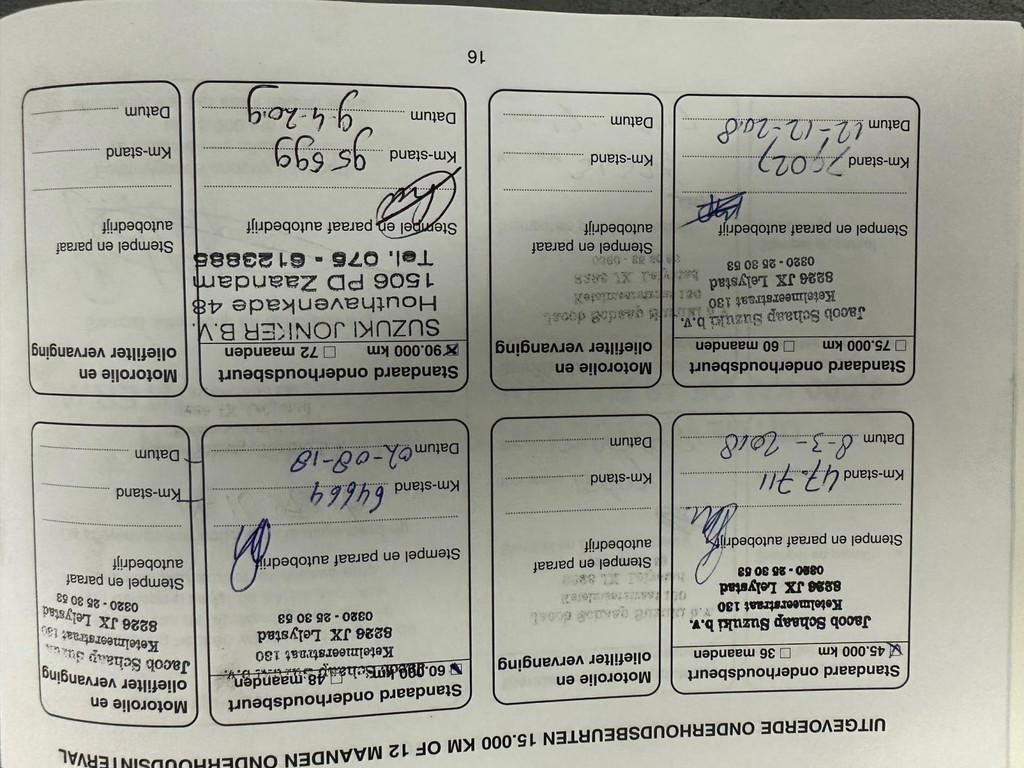 UITGEVOERDE ONDERHOUDSBEURTEN 15.000 KM OF 12 MAANDEN ONDERHOUDSINTERVAL
Standaard onderhoudsbeurt
☒ 45.000 km ☐ 36 maanden
Jacob Schaap Suzuki b.v.
Ketelmeerstraat 130
8226 JX Lelystad
0320 - 25 30 53
Stempel en paraaf autobedrijf
Km-stand 47.711
Datum 8-3-2018
Motorolie en
oliefilter vervanging
Stempel en paraaf
autobedrijf
Km-stand
Datum
Standaard onderhoudsbeurt
☒ 60.000 km ☐ 48 maanden
Jacob Schaap Suzuki b.v.
Ketelmeerstraat 130
8226 JX Lelystad
0320 - 25 30 53
Stempel en paraaf autobedrijf
Km-stand 64664
Datum 02-08-18
Motorolie en
oliefilter vervanging
Jacob Schaap Suzuki
Ketelmeerstraat 130
8226 JX Lelystad
0320 - 25 30 53
Stempel en paraaf
autobedrijf
Km-stand
Datum
Standaard onderhoudsbeurt
☐ 75.000 km ☐ 60 maanden
Jacob Schaap Suzuki b.v.
Ketelmeerstraat 130
8226 JX Lelystad
0320 - 25 30 53
Stempel en paraaf autobedrijf
Km-stand
Datum 12-12-2018
Motorolie en
oliefilter vervanging
Stempel en paraaf
autobedrijf
Km-stand
Datum
Standaard onderhoudsbeurt
☒ 90.000 km ☐ 72 maanden
SUZUKI JONKER B.V.
Houthavenkade 48
1506 PD Zaandam
Tel. 075 - 6123885
Stempel en paraaf autobedrijf
Km-stand 95699
Datum 9-4-2019
Motorolie en
oliefilter vervanging
Stempel en paraaf
autobedrijf
Km-stand
Datum
16